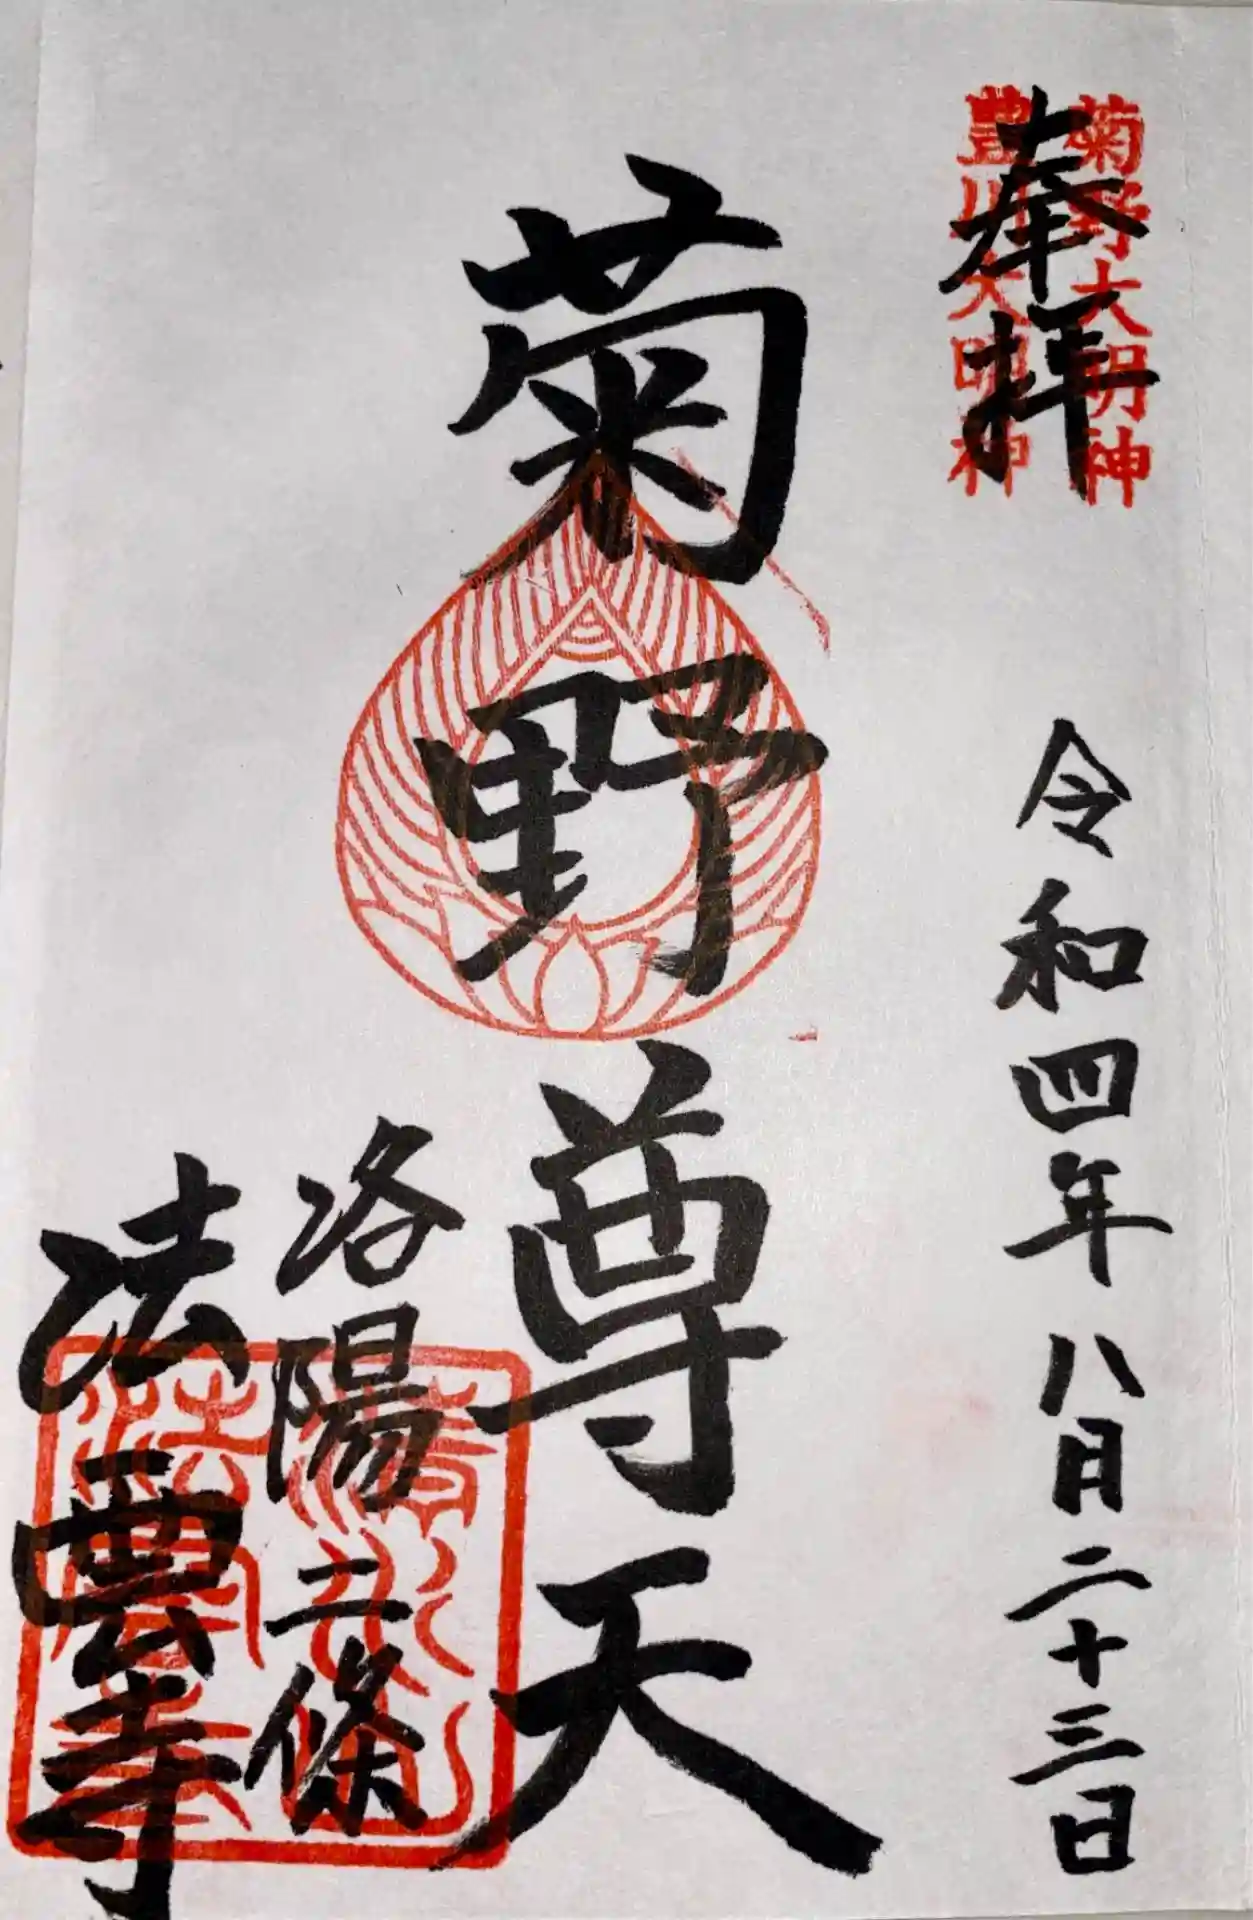 菊野大明神
奉拝
豊川大明神
令和四年八月二十三日
菊野尊天
洛陽二條
法雲寺